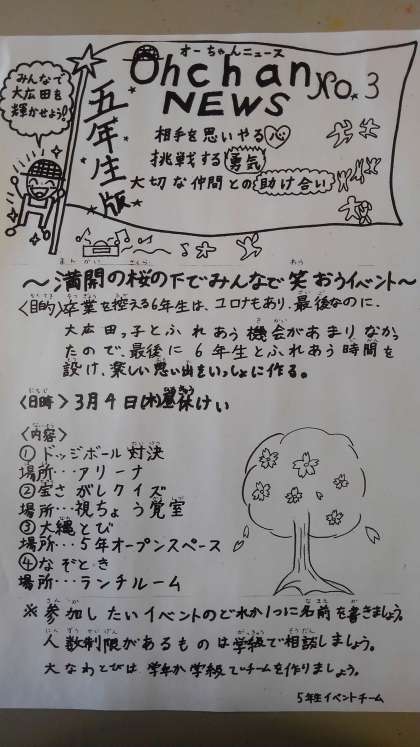 みんなで
大広田を
輝かせよう!
五年生版
オーちゃんニュース
Ohchan No.3
NEWS
相手を思いやる心
挑戦する勇気
大切な仲間との助け合い
～満開の桜の下でみんなで笑おうイベント～
〈目的〉卒業を控える6年生は、コロナもあり、最後なのに、
大広田っ子とふれあう機会があまりなかっ
たので、最後に6年生とふれあう時間を
設け、楽しい思い出をいっしょに作る。
〈日時〉3月4日(木)昼休けい
〈内容〉
①ドッジボール対決
場所…アリーナ
②宝さがしクイズ
場所…視ちょう覚室
③大縄とび
場所…5年オープンスペース
④なぞとき
場所…ランチルーム
※参加したいイベントのどれか1つに名前を書きましょう。
人数制限があるものは学級で相談しましょう。
大なわとびは学年か学級でチームを作りましょう。
5年生イベントチーム